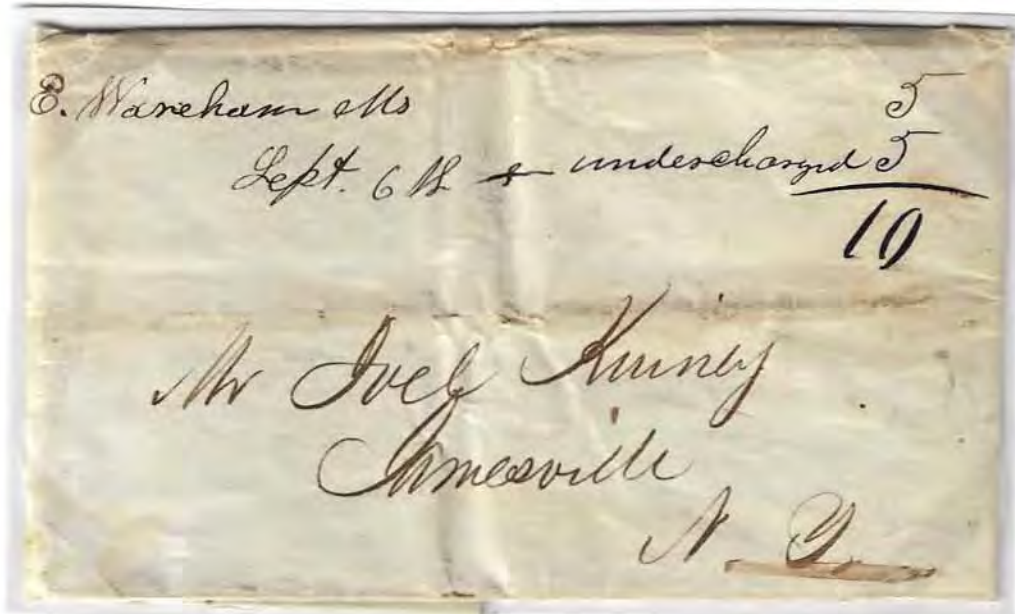 E. Wareham Ms 5
Sept. 6th undercharged 5
10
Mr Joel Kinney
Jamesville
N. Y.